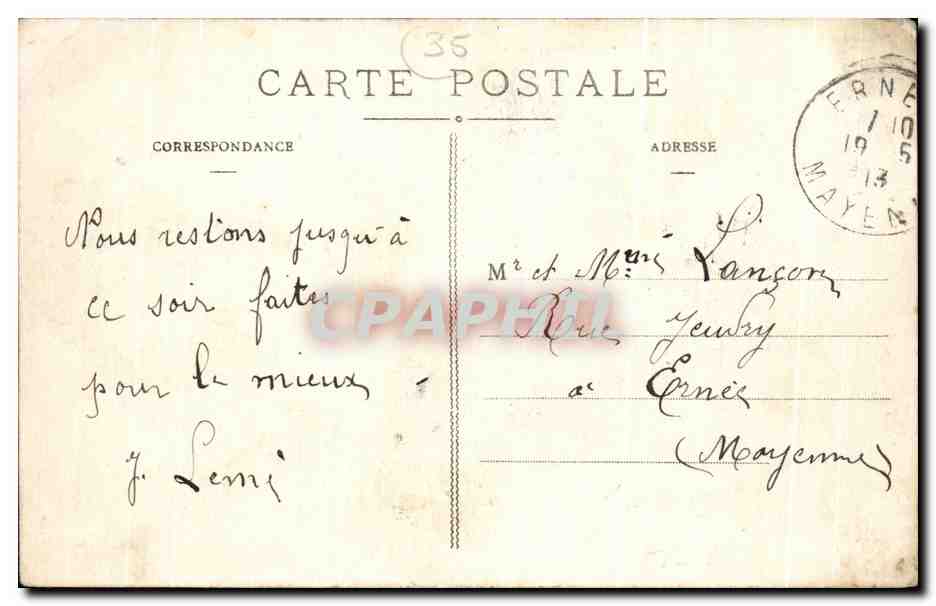 35
CARTE POSTALE
CORRESPONDANCE
Nous restons jusqu'à
ce soir faites
pour le mieux
J. Lemé
ADRESSE
Mr et Mme Lançon
Rue
à Ernée
(Mayenne)
ERNE
1 10
19 5
13
MAYEN
CPAPHIL